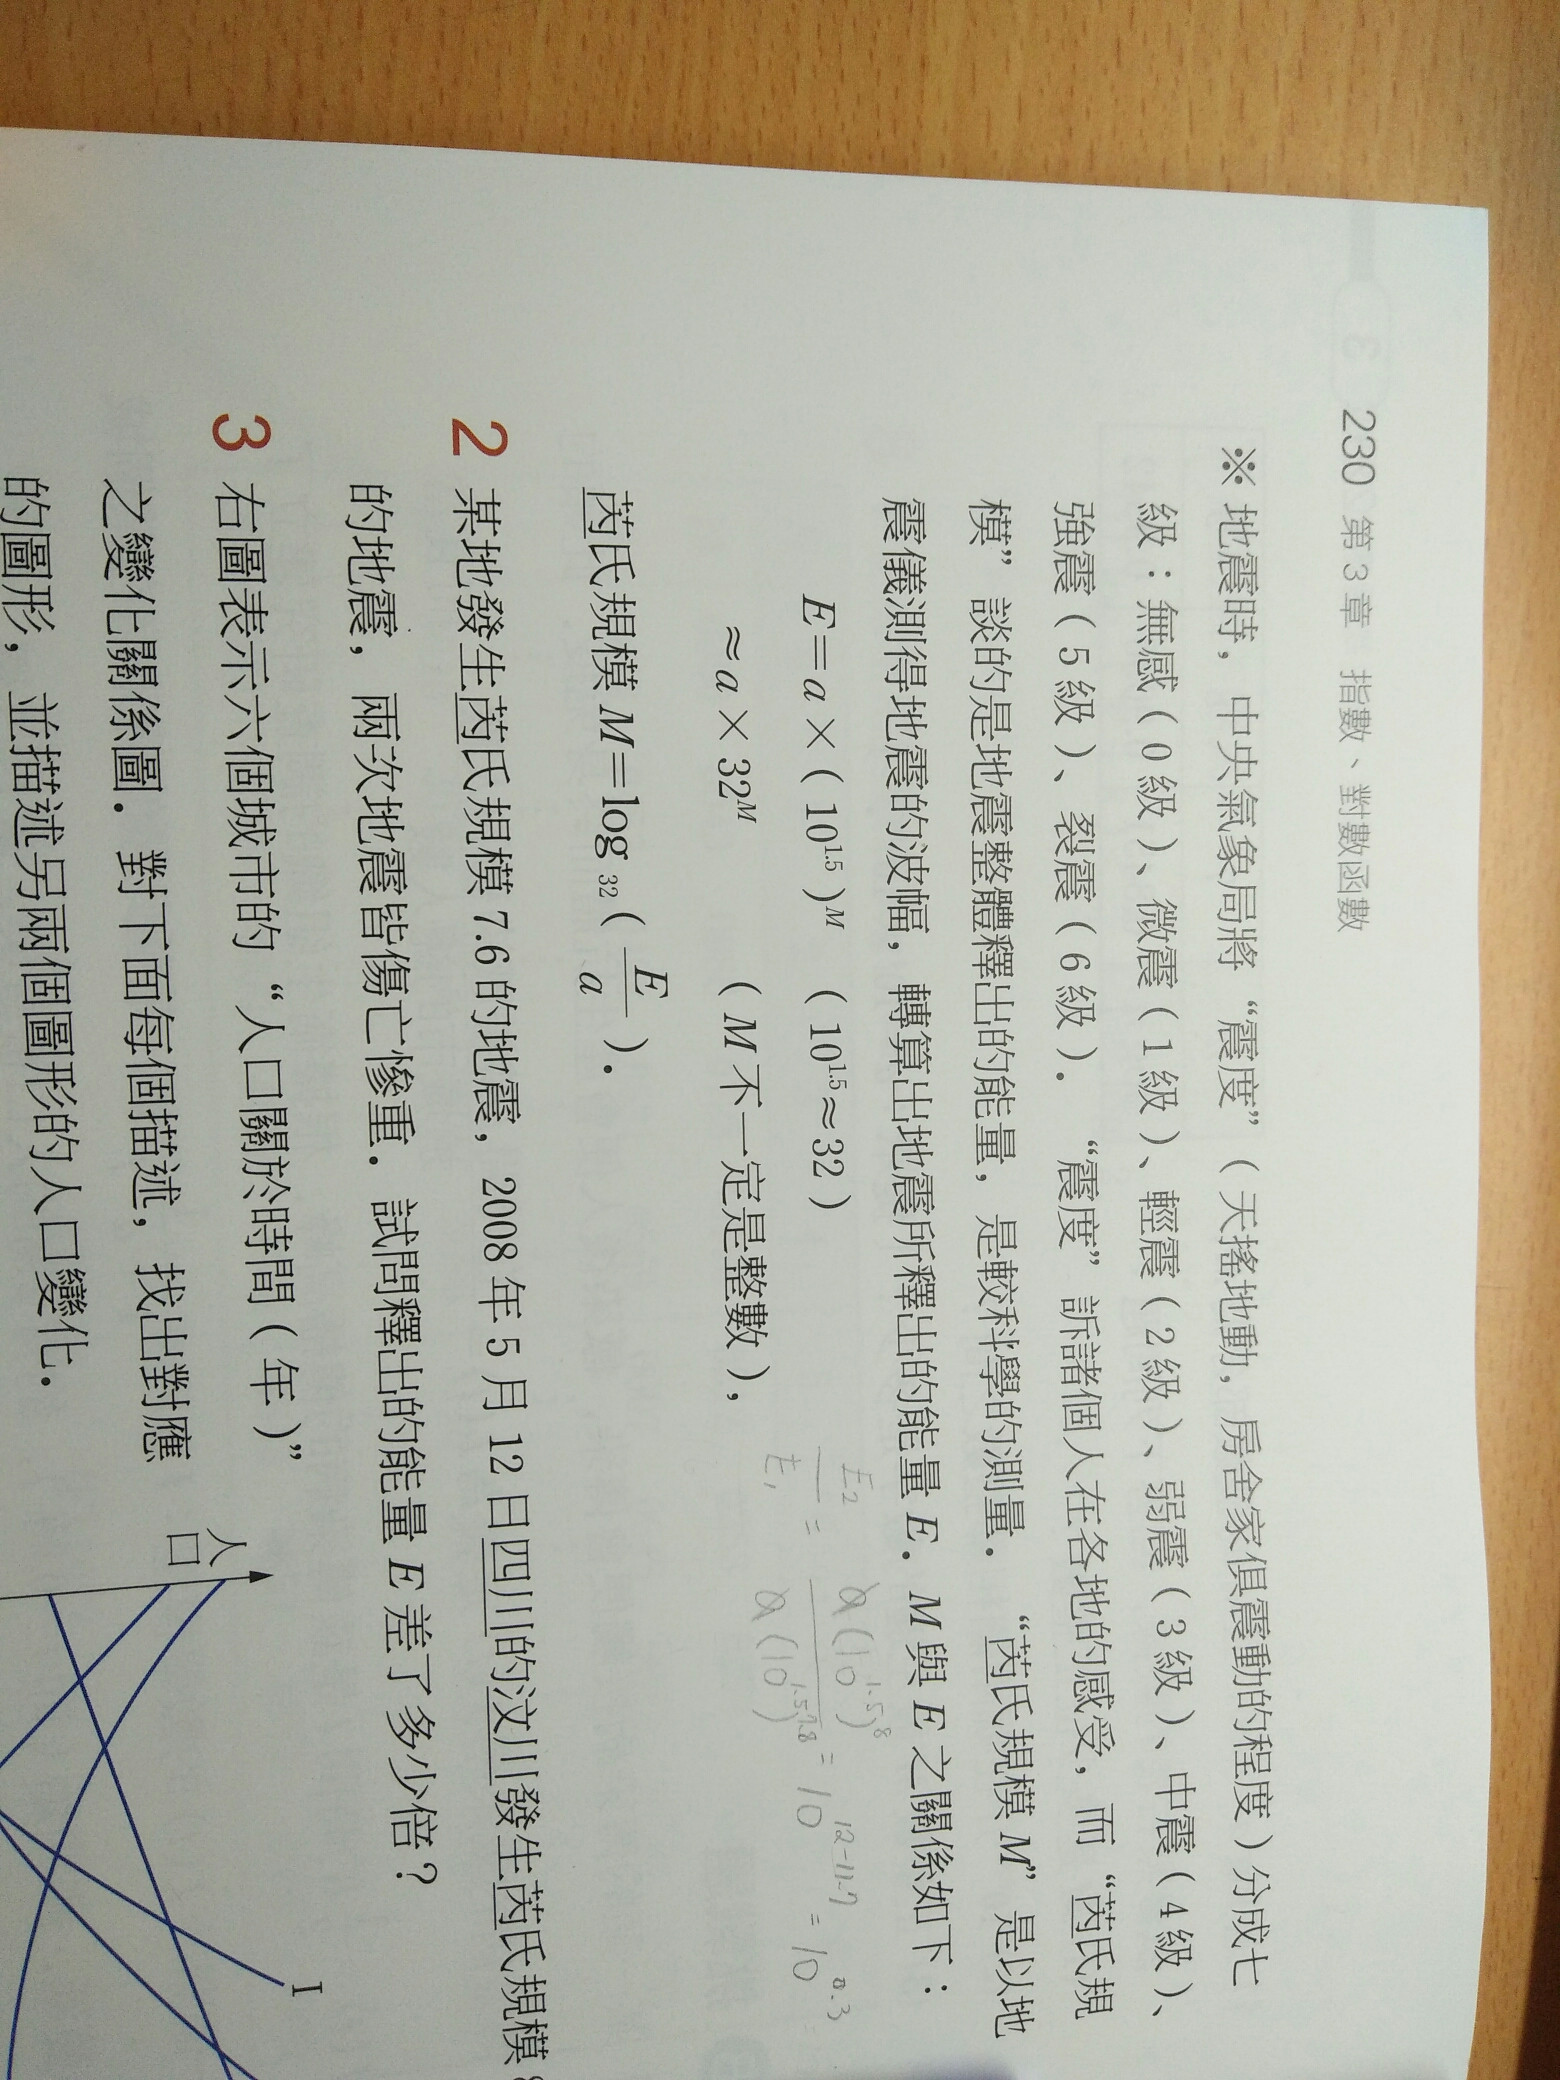 230 第 3 章 指數、對數函數
※ 地震時，中央氣象局將 “震度”（天搖地動，房舍家俱震動的程度）分成七
級：無感（0 級）、微震（1 級）、輕震（2 級）、弱震（3 級）、中震（4 級）、
強震（5 級）、裂震（6 級）. “震度” 訴諸個人在各地的感受，而 “芮氏規
模” 談的是地震整體釋出的能量，是較科學的測量. “芮氏規模 M” 是以地
震儀測得地震的波幅，轉算出地震所釋出的能量 E. M 與 E 之關係如下：
E=a×(10^1.5)^M （10^1.5≈32）
≈a×32^M （M 不一定是整數），
E2/E1 = a(10^1.5)^8/a(10^1.5)^7.8 = 10^12-11.7 = 10^0.3
芮氏規模 M=log 32 (E/a).
2 某地發生芮氏規模 7.6 的地震，2008 年 5 月 12 日四川的汶川發生芮氏規模
的地震，兩次地震皆傷亡慘重. 試問釋出的能量 E 差了多少倍？
3 右圖表示六個城市的 “人口關於時間（年）”
之變化關係圖. 對下面每個描述，找出對應
的圖形，並描述另兩個圖形的人口變化.
人口
I